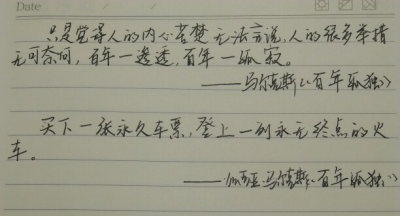 Date
只是觉得人的内心苦楚无法言说,人的很多举措
无可奈何,百年一渗透,百年一孤寂。
——马尔克斯《百年孤独》
买下一张永久车票,登上一列永无终点的火
车。
——加西亚·马尔克斯《百年孤独》